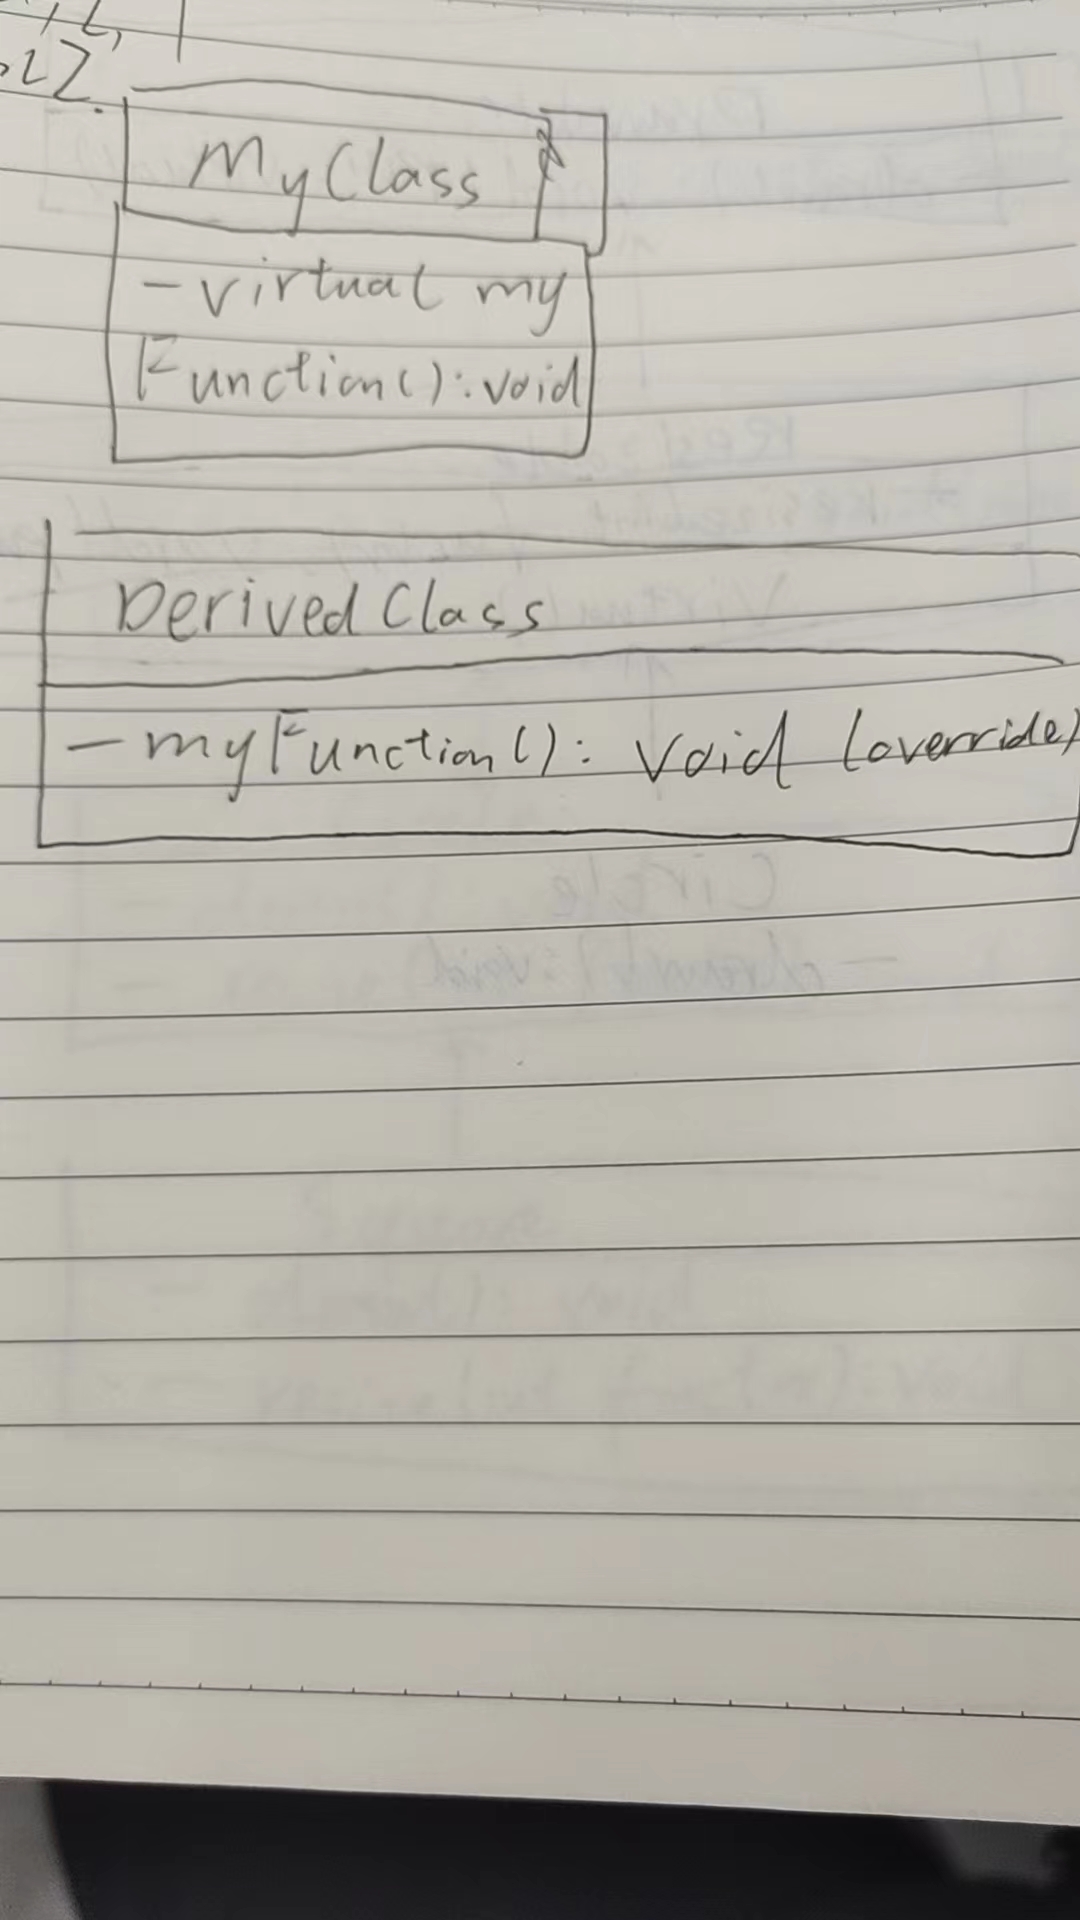 22.
MyClass
- virtual my
Function() : void
Derived Class
- myFunction() : void (override)